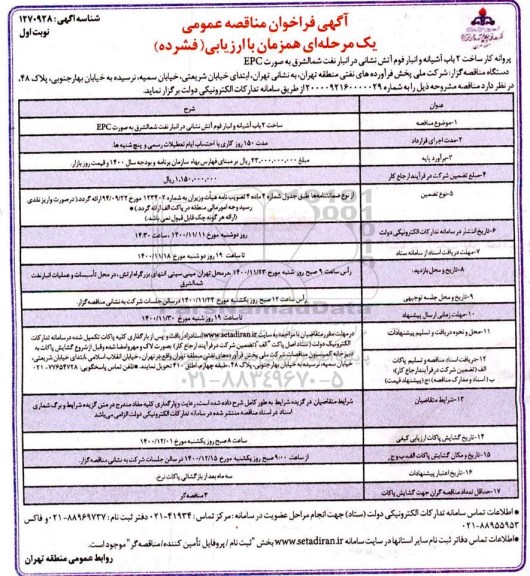 شناسه آگهی: ۱۲۷۰۹۲۸
نوبت اول
آگهی فراخوان مناقصه عمومی
یک مرحله‌ای همزمان با ارزیابی( فشرده)
پروانه کار ساخت ۲ باب آشیانه و انبار فوم آتش نشانی در انبار نفت شمالشرق به صورت EPC
دستگاه مناقصه گزار: شرکت ملی پخش فرآورده های نفتی منطقه تهران، به نشانی تهران، ابتدای خیابان شریعتی، خیابان سمیه، نرسیده به خیابان بهارجنوبی، پلاک ۴۸،
در نظر دارد مناقصه مشروحه ذیل را به شماره ۲۰۰۰۰۹۲۱۶۰۰۰۰۰۲۹ از طریق سامانه تدارکات الکترونیکی دولت برگزار نماید.
عنوان شرح
۱-موضوع مناقصه ساخت ۲ باب آشیانه و انبار فوم آتش نشانی در انبار نفت شمالشرق به صورت EPC
۲-مدت اجرای قرارداد مدت ۱۵۰ روز کاری با احتساب ایام تعطیلات رسمی و پنج شنبه ها
۳-برآورد پایه مبلغ ۲۳,۰۰۰,۰۰۰,۰۰۰ ریال بر مبنای فهارس بهاء سازمان برنامه و بودجه سال ۱۴۰۰ و قیمت روز بازار.
۴-مبلغ تضمین شرکت در فرآیند ارجاع کار ۱,۱۵۰,۰۰۰,۰۰۰ ریال
۵-نوع تضمین از نوع ضمانتنامه‌ها طبق جدول شماره ۴ ماده ۴ تصویب نامه هیأت وزیران به شماره ۱۲۳۴۰۲ مورخ ۹۴/۰۹/۲۲ ارائه گردد.( در صورت واریز نقدی
رسید وجه امور مالی منطقه در پاکت الف ارائه گردد.)
(ارائه هر گونه چک قابل قبول نمی باشد)
۶-تاریخ انتشار در سامانه تدارکات الکترونیکی دولت روز دوشنبه مورخ ۱۴۰۰/۱۱/۱۱ ،ساعت ۱۴:۳۰
۷-مهلت دریافت اسناد از سامانه ستاد تا ساعت ۱۹ روز دوشنبه مورخ ۱۴۰۰/۱۱/۱۸
۸-تاریخ و محل بازدید: رأس ساعت ۹ صبح روز شنبه مورخ ۱۴۰۰/۱۱/۲۳ در محل تهران مینی سیتی انتهای بزرگراه ارتش، در محل تأسیسات و عملیات انبار نفت
شمالشرق
۹-تاریخ و محل جلسه توجیهی رأس ساعت ۱۲ صبح روز یکشنبه مورخ ۱۴۰۰/۱۱/۲۴ در سالن جلسات شرکت به نشانی مناقصه گزار.
۱۰-مهلت زمانی ارسال پیشنهاد تا ساعت ۱۹ روز شنبه مورخ ۱۴۰۰/۱۱/۳۰
۱۱-محل و نحوه دریافت و تسلیم پیشنهادات در مهلت مقرر متقاضیان با مراجعه به سایت www.setadiran.ir اسناد را دریافت و پس از بارگذاری کلیه پاکات تکمیل شده در سامانه تدارکات
۱۲-دریافت اسناد مناقصه و تسلیم پاکات
الف (تضمین شرکت در فرآیند ارجاع کار)
ب ( اسناد و مدارک مناقصه) ج( پیشنهاد قیمت)
الکترونیک دولت (ستاد) اصل پاکت "الف" (تضمین شرکت در فرآیند ارجاع کار) بصورت لاک و مهر و امضا شده وقبل از شروع گشایش پاکات به
دبیرخانه کمیسیون مناقصات شرکت ملی پخش فرآورده‌های نفتی منطقه تهران واقع در تهران ، خیابان انقلاب اسلامی ابتدای خیابان شریعتی،
خیابان سمیه، نرسیده به خیابان بهارجنوبی، پلاک ۴۸، طبقه چهارم، اطاق ۴۱۰ تحویل نمایند. *تلفن تماس پاسخگویی: ۷۷۶۵۴۷۲۸-۰۲۱
۱۳-شرایط متقاضیان شرایط متقاضیان در گزیده شرایط به طور کامل شرح داده شده است، رعایت و بارگذاری کلیه مفاد مندرج در متن گزیده شرایط و برگ شماری
اسناد در اسناد مناقصه منتشر شده در سامانه تدارکات الکترونیکی دولت الزامی می‌باشد
۱۴-تاریخ گشایش پاکات ارزیابی کیفی ساعت ۸ صبح روز یکشنبه مورخ ۱۴۰۰/۱۲/۰۱
۱۵-تاریخ و مکان گشایش پاکات الف،ب و ج. از ساعت ۹:۰۰ صبح روز یکشنبه مورخ ۱۴۰۰/۱۲/۱۵ در سالن جلسات شرکت به نشانی مناقصه گزار.
۱۶-تاریخ اعتبار پیشنهادات سه ماه بعد از بازگشائی پاکات نرخ.
۱۷-حداقل تعداد مناقصه گران جهت گشایش پاکات ۳ مناقصه گر
• اطلاعات تماس سامانه تدارکات الکترونیکی دولت (ستاد) جهت انجام مراحل عضویت در سامانه : مرکز تماس : ۴۱۹۳۴-۰۲۱ دفتر ثبت نام : ۸۸۹۶۹۷۳۷-۰۲۱ و فاکس
۸۸۹۵۵۹۵۳
• اطلاعات تماس دفاتر ثبت نام سایر استانها در سایت سامانه www.setadiran.ir بخش "ثبت نام / پروفایل تأمین کننده/ مناقصه گر" موجود است.
روابط عمومی منطقه تهران
۰۲۱-۸۸۳۴۹۶۷۰-۵